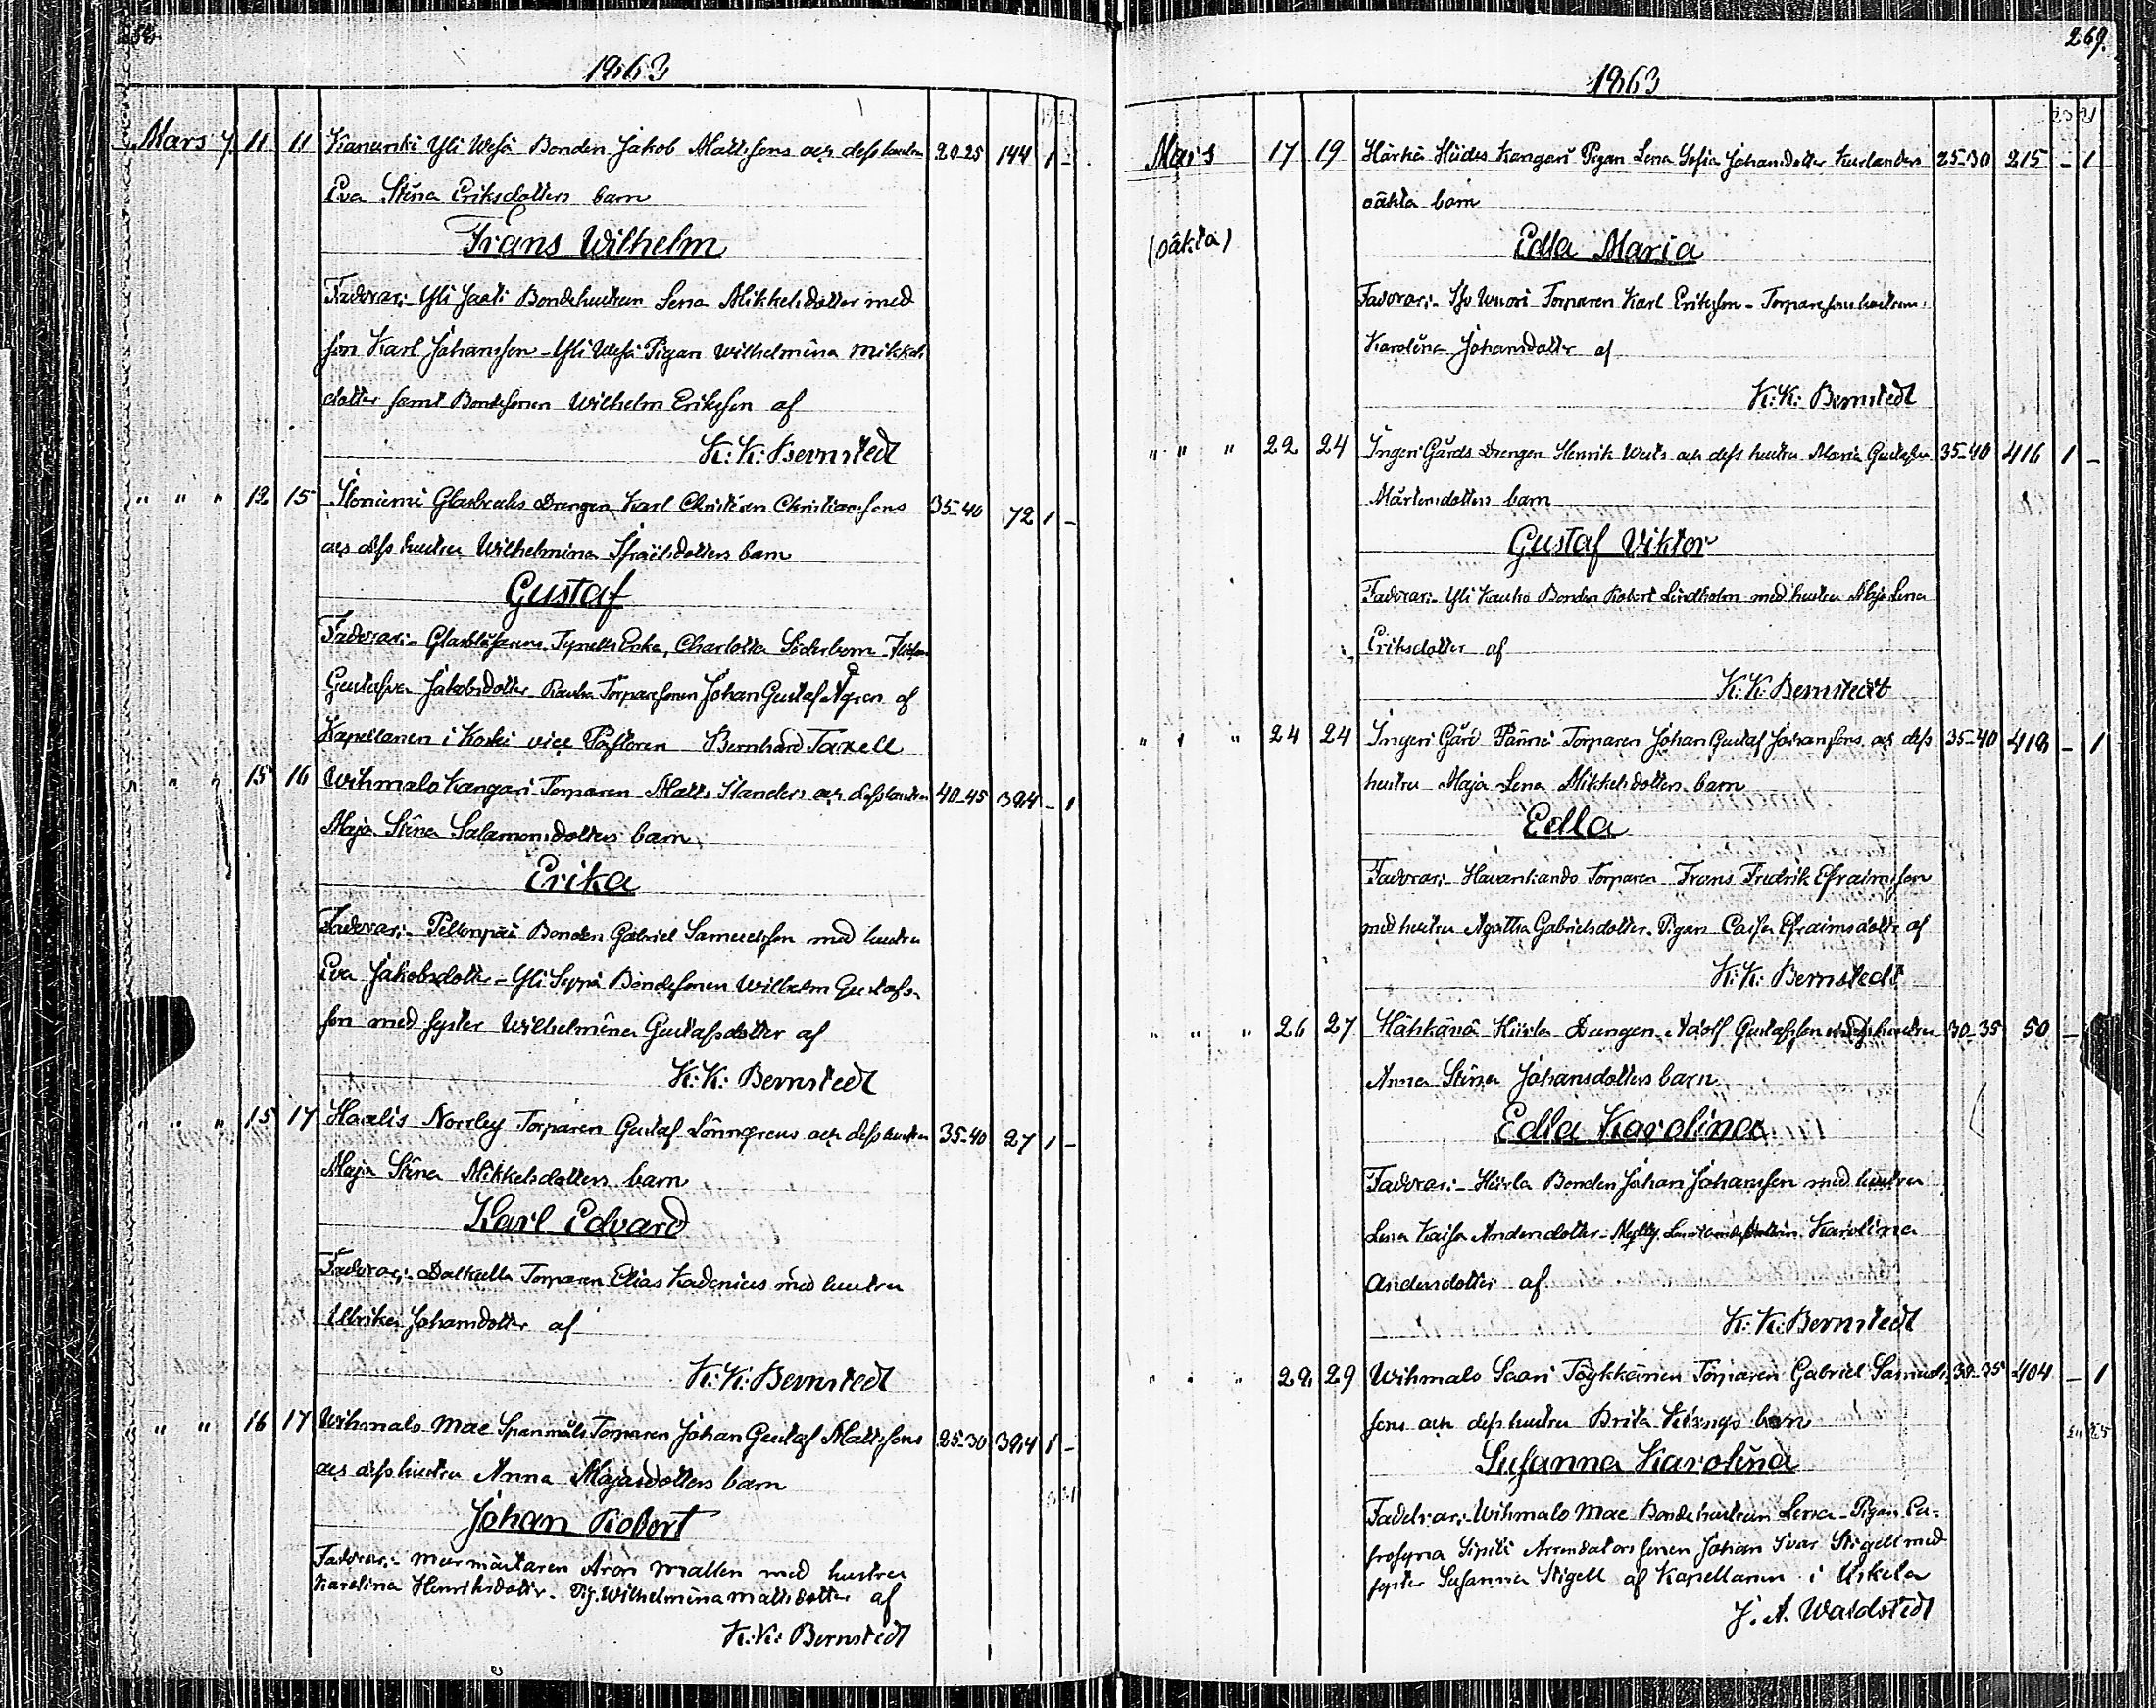 1863
Mars 7. 11 11 Kanunki Yli Wesä Bonden Jakob Mattssons och dess hustru 20-25 144 1 -
Eva Stina Eriksdotters barn
Frans Wilhelm
Faddrar:- Yli Jaati Bondehustrun Lena Mikkelsdotter med
son Karl Johansson - Yli Wesä Pigan Wilhelmina Mikkels
dotter samt Bondesonen Wilhelm Eriksson af
K: K: Bernstedt
" " " 12 15 Glasbruks Drengen Karl Christian Christianssons 35-40 72 1 -
och dess hustru Wilhelmina Israelsdotters barn
Gustaf
Faddrar:- Enka, Charlotta Söderbom
Gustafva Jakobsdotter Torparesonen Johan Gustaf Ågren af
Kapellanen i Koski vice Pastoren Bernhard Taxell
" " " 15 16 Wihmalo Kangari Torparen Matts Ilanders och dess hustru 40-45 394 - 1
Maja Stina Salamonsdotters barn
Erika
Faddrar:- Pellonpää Bonden Gabriel Samuelsson med hustru
Eva Jakobsdotter - Yli Seppä Bondesonen Wilhelm Gustafs-
son med syster Wilhelmina Gustafsdotter af
K: K: Bernstedt
" " " 15 17 Haalis Norrby Torparen Gustaf Lönngrens och dess hustru 35-40 27 1 -
Maja Stina Mikkelsdotters barn
Karl Edvard
Faddrar:- Torparen Elias Kadenius med hustru
Ulrika Johansdotter af
K: K: Bernstedt
" " 16 17 Wihmalo Mae Spanmåls Torparen Johan Gustaf Mattssons 25-30 394 1 -
och dess hustru Anna Majasdotters barn
Johan Robert
Faddrar:- murmästaren Aron Mallen med hustru
Karolina Henriksdotter. Pig. Wilhelmina Mattsdotter af
K: K: Bernstedt
269.
1863
Mars 17 19 Härkä Hiides Kangari Pigan Lena Sofia Johansdotter Kurlanders 25-30 215 - 1
oäkta barn
(oäkta)
Edla Maria
Faddrar:- Iso Wuori Torparen Karl Eriksson - Torparesonhustrun
Karolina Johansdotter af
K: K: Bernstedt
" " " 22 24 Ingeri Gårds Drengen Henrik Weits och dess hustru Maria Gustafva 35-40 416 1 -
Mårtensdotters barn
Gustaf Viktor
Faddrar:- Yli Kauko Bonden Robert Lindholm med hustru Maja Lena
Eriksdotter af
K: K: Bernstedt
" " " 24 24 Ingeri Gård Pänni Torparen Johan Gustaf Johanssons och dess 35-40 418 - 1
hustru Maja Lena Mikkelsdotters barn
Edla
Faddrar:- Torparen Frans Fredrik Efraimsson
med hustru Agatha Gabrielsdotter. Pigan Caisa Efraimsdotter af
K: K: Bernstedt
" " " 26 27 Hähkänä Hiirla Drengen Adolf Gustafsson med hustru 30-35 50 -
Anna Stina Johansdotters barn
Edla Karolina
Faddrar:- Hiirla Bonden Johan Johansson med hustru
Lena Kaisa Andersdotter - Karolina
Andersdotter af
K: K: Bernstedt
" " " 28 29 Wihmalo Saari Töykkänen Torparen Gabriel Samuels 30-35 404 - 1
sons och dess hustru Brita Kirings barn
Susanna Karolina
Faddrar:- Wihmalo Mae Bondehustrun Lena - Pigan Eu-
frosyna Sipilä Arrendatorssonen Johan Ivar Stigell med
syster Susanna Stigell af Kapellanen i Uskela
J. A. Waldstedt